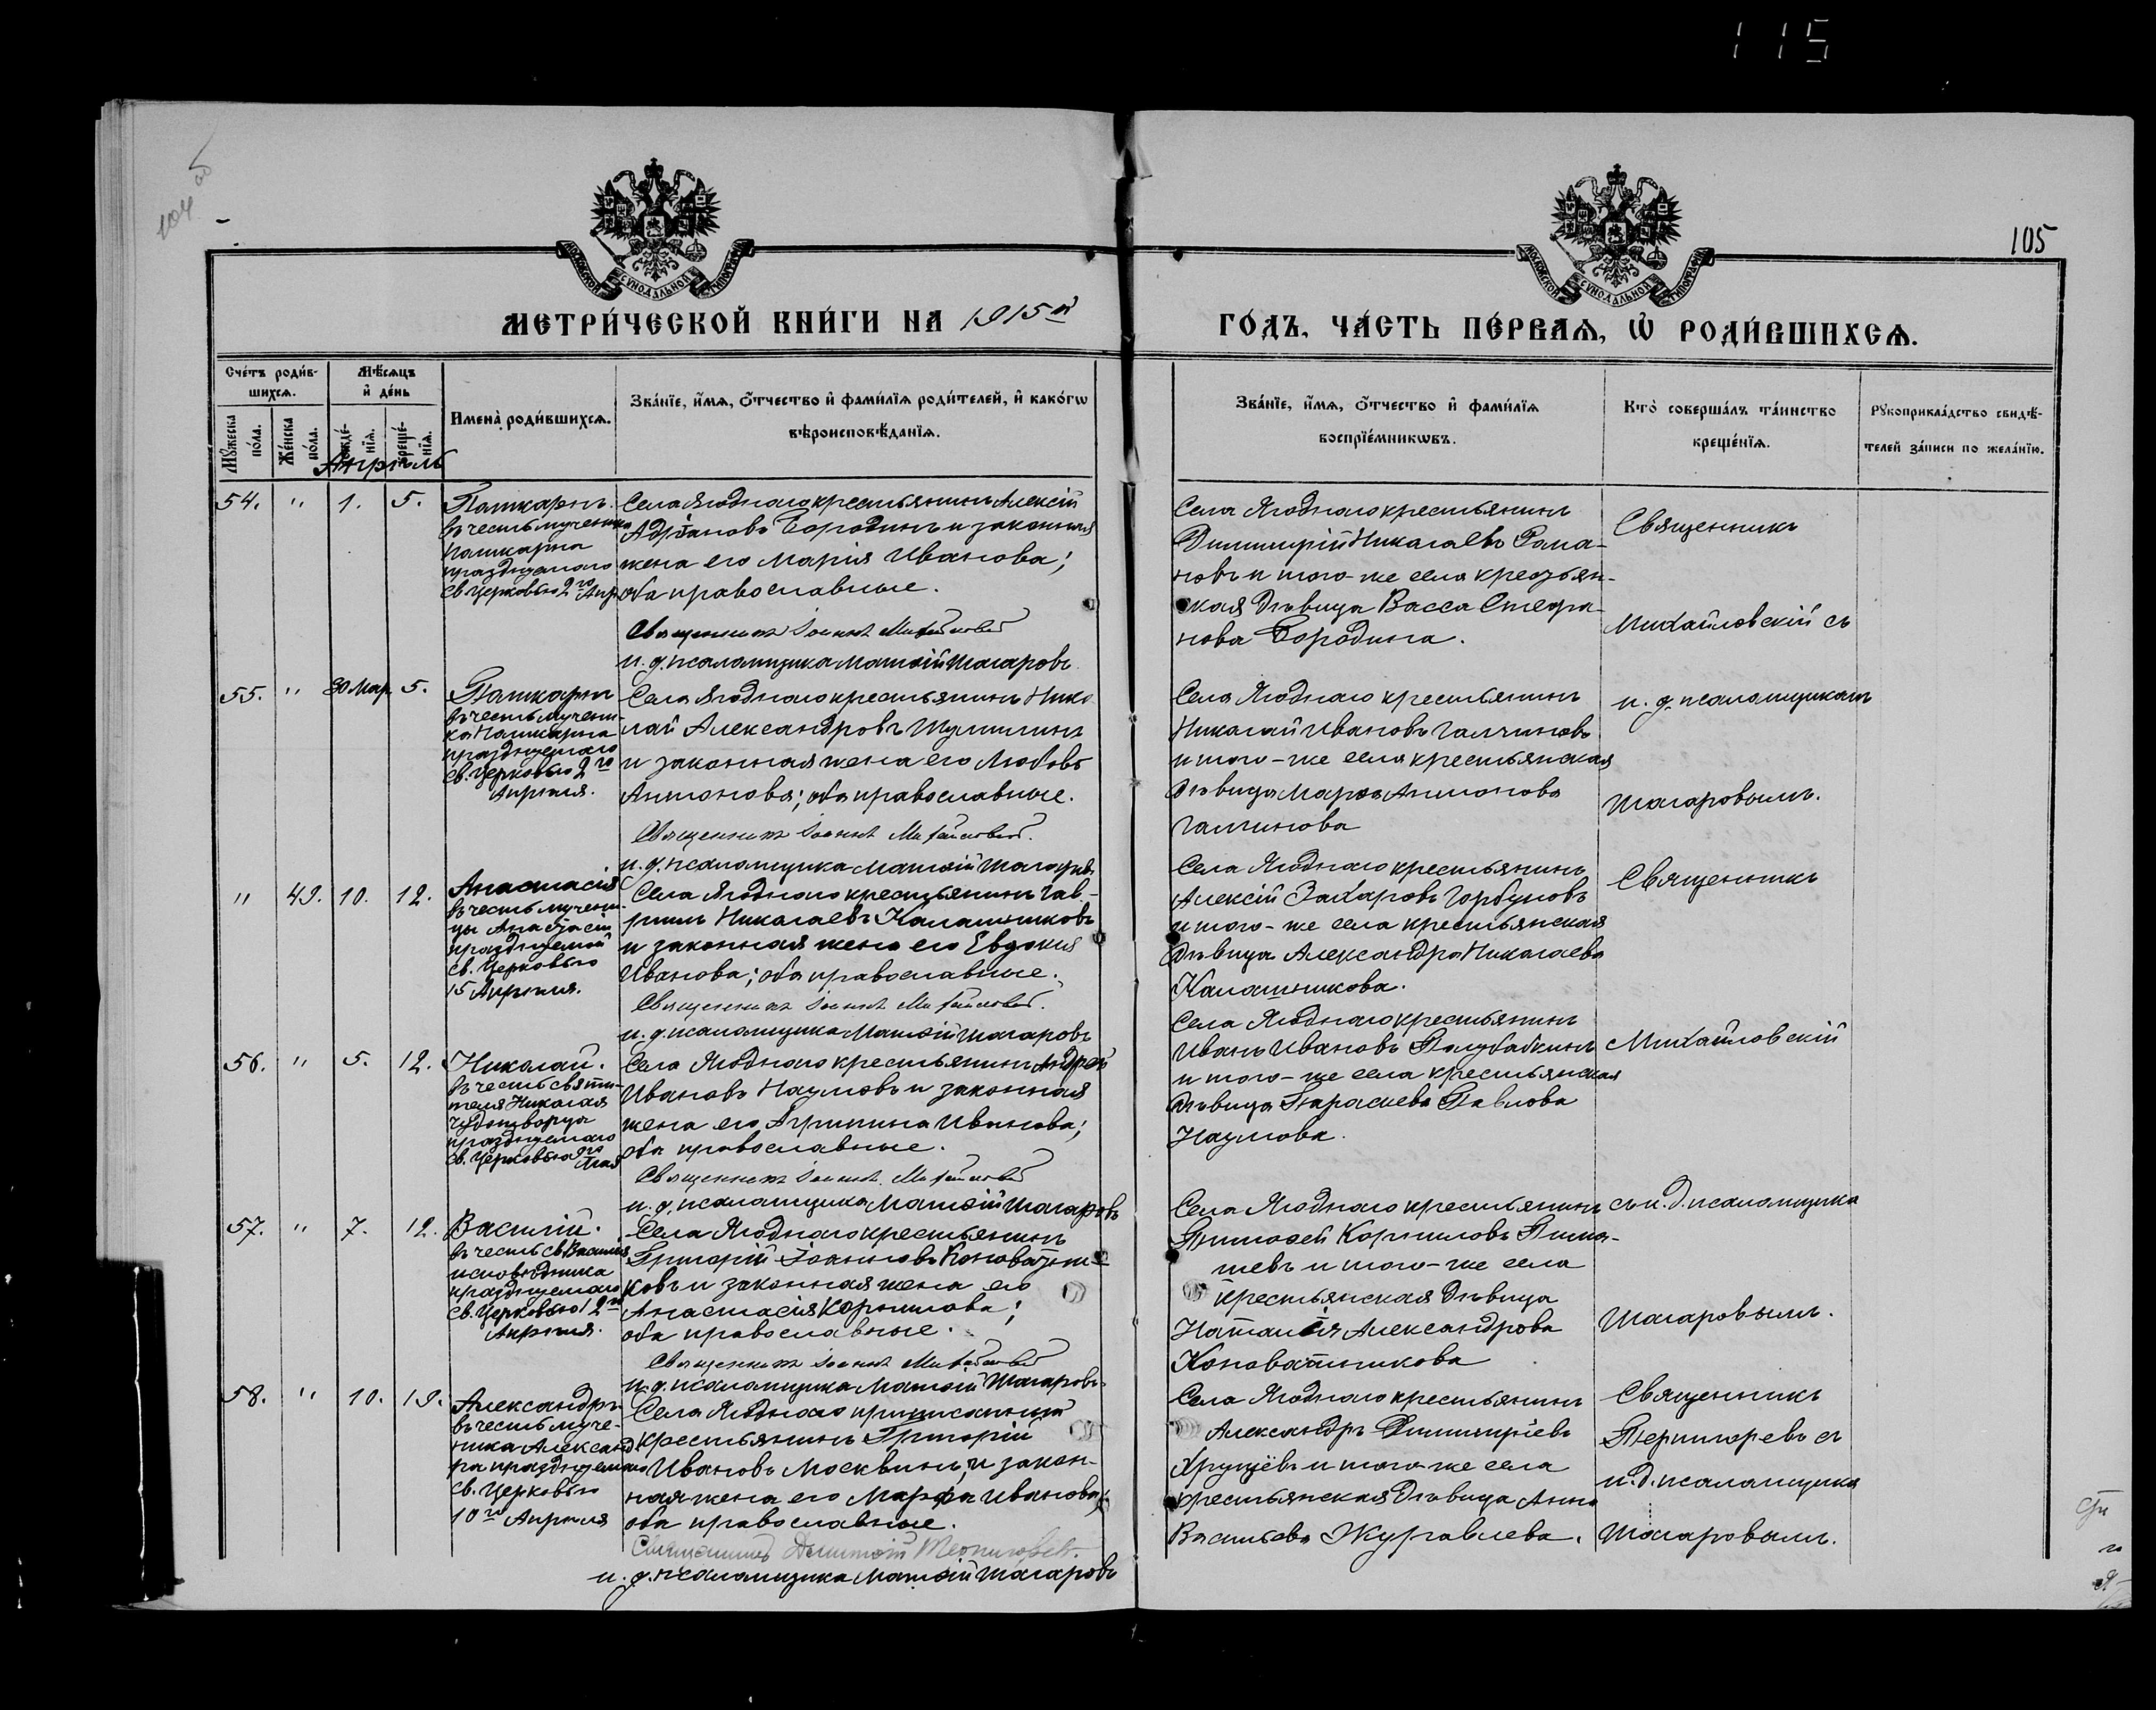 115
105
МОСКОВСКОЙ СѴНОДАЛЬНОЙ ТИПОГРАФІИ
МОСКОВСКОЙ СѴНОДАЛЬНОЙ ТИПОГРАФІИ
МЕТРИ́ЧЕСКОЙ КНИ́ГИ НА 1915й
ГО́ДЪ, ЧА́СТЬ ПЕ́РВАѦ, Ѡ҆ РОДИ́ВШИХСѦ.
Сче́тъ роди́в-
шихсѧ.
Мѣ́сѧцъ
и҆ де́нь
Мꙋ́жеска по́ла.
Же́нска по́ла.
рожде́-
нїѧ.
креще́-
нїѧ.
Имена̀ роди́вшихсѧ.
Зва́нїе, и҆́мѧ, ѻ҆́тчество и҆ фами́лїѧ роди́телей, и҆ како́гѡ
вѣроисповѣ́данїѧ.
Зва́нїе, и҆́мѧ, ѻ҆́тчество и҆ фами́лїѧ
воспрїе́мникѡвъ.
Кто̀ соверша́лъ та́инство
креще́нїѧ.
Рꙋкоприкла́дство свидѣ́-
телей за́писи по жела́нїю.
Апрѣль
54. " 1. 5.
Поликарпъ.
въ честь мученика
Поликарпа
празднуемаго
св. Церковью 2го Апр.
Села Ягоднаго крестьянинъ Алексій
Адріановъ Бородинъ и законная
жена его Марія Иванова;
оба православные.
Священникъ Іоаннъ Михайловскій
и. д. псаломщика Матѳій Шагаровъ
Села Ягоднаго крестьянинъ
Димитрій Николаевъ Рома-
новъ и того-же села крестьян-
ская дѣвица Васса Стефа-
нова Бородина.
Священникъ
Михайловскій съ
55. " 30 Мар. 5.
Поликарпъ
въ честь мучени-
ка Поликарпа
празднуемаго
св. Церковью 2го
Апрѣля.
Села Ягоднаго крестьянинъ Нико-
лай Александровъ Шумилинъ
и законная жена его Любовь
Антонова; оба православные.
Священникъ Іоаннъ Михайловскій.
и. д. псаломщика Матѳій Шагаровъ
Села Ягоднаго крестьянинъ
Николай Ивановъ Галчиновъ
и того-же села крестьянская
дѣвица Марѳа Антонова
Галчинова
и. д. псаломщикомъ
Шагаровымъ.
" 49. 10. 12.
Анастасія
въ честь мучени-
цы Анастасіи
празднуемой
св. Церковью
15 Апрѣля.
Села Ягоднаго крестьянинъ Гав-
ріилъ Николаевъ Калашниковъ
и законная жена его Евдокія
Иванова; оба православные.
Священникъ Іоаннъ Михайловскій.
и. д. псаломщика Матѳій Шагаровъ
Села Ягоднаго крестьянинъ
Алексій Захаровъ Горбуновъ
и того-же села крестьянская
дѣвица Александра Николаева
Калашникова.
Священникъ
56. " 5. 12.
Николай.
въ честь святи-
теля Николая
чудотворца
празднуемаго
св. Церковью 9го
Мая
Села Ягоднаго крестьянинъ Андрей
Ивановъ Наумовъ и законная
жена его Агрипина Иванова;
оба православные.
Священникъ Іоаннъ Михайловскій
и. д. псаломщика Матѳій Шагаровъ
Села Ягоднаго крестьянинъ
Иванъ Ивановъ Полубабкинъ
и того-же села крестьянская
дѣвица Параскева Павлова
Наумова.
Михайловскій
57. " 7. 12.
Василій.
въ честь св. Василія
исповѣдника
празднуемаго
св. Церковью 12го
Апрѣля.
Села Ягоднаго крестьянинъ
Григорій Іоанновъ Коноватни-
ковъ и законная жена его
Анастасія Корнилова;
оба православные.
Священникъ Іоаннъ Михайловскій
и. д. псаломщика Матѳій Шагаровъ.
Села Ягоднаго крестьянинъ
Тимоѳей Корниловъ Пима-
шевъ и того-же села
крестьянская дѣвица
Наталія Александрова
Коноватникова
съ и. д. псаломщика
Шагаровымъ.
58. " 10. 19.
Александръ
въ честь муче-
ника Александ
ра празднуемаго
св. Церковью
10го Апрѣля
Села Ягоднаго приписанный
крестьянинъ Григорій
Ивановъ Москвинъ, и закон-
ная жена его Марфа Иванова;
оба православные.
Священникъ Димитрій Терниторевъ.
и. д. псаломщика Матѳій Шагаровъ
Села Ягоднаго крестьянинъ
Александръ Димитріевъ
Хрущёвъ и того-же села
крестьянская дѣвица Анна
Васильева Журавлева.
Священникъ
Терниторевъ съ
и. д. псаломщика
Шагаровымъ.